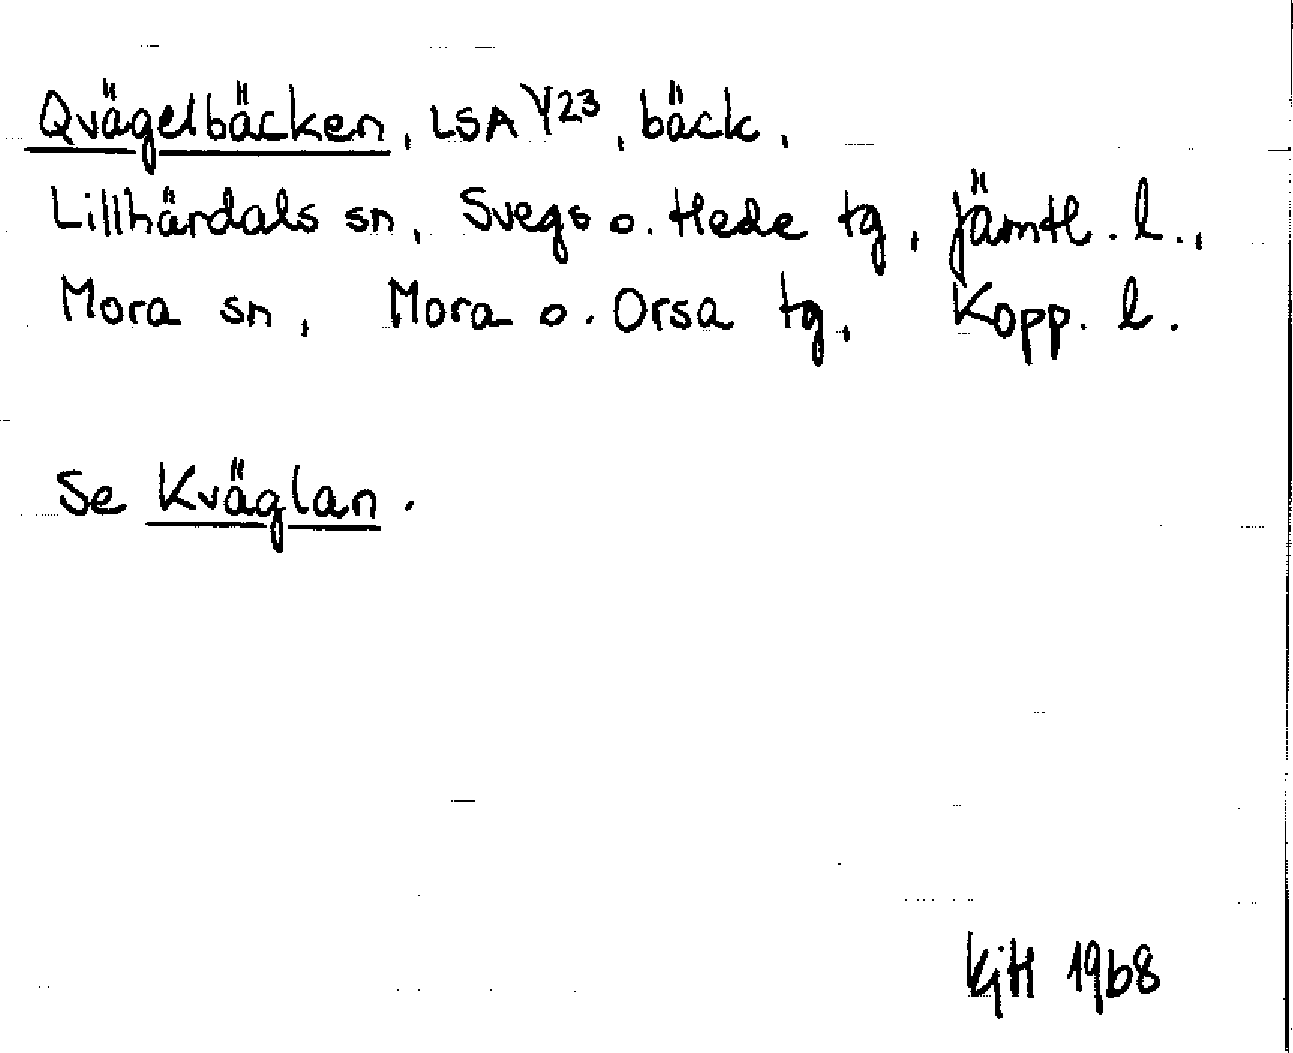 Qvägelbäcken, LSA Y23, bäck,
Lillhärdals sn, Svegs o. Hede tg, Jämtl. l.,
Mora sn, Mora o. Orsa tg, Kopp. l.
Se Kväglan.
KjH 1968